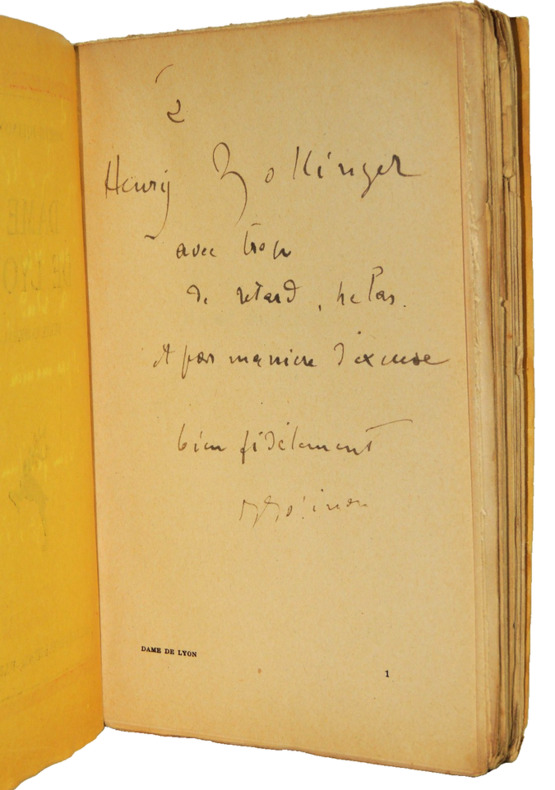 à
Henry Bollinger
avec trop
de retard, helas.
et par maniere d'excuse
bien fidèlement
DAME DE LYON
1